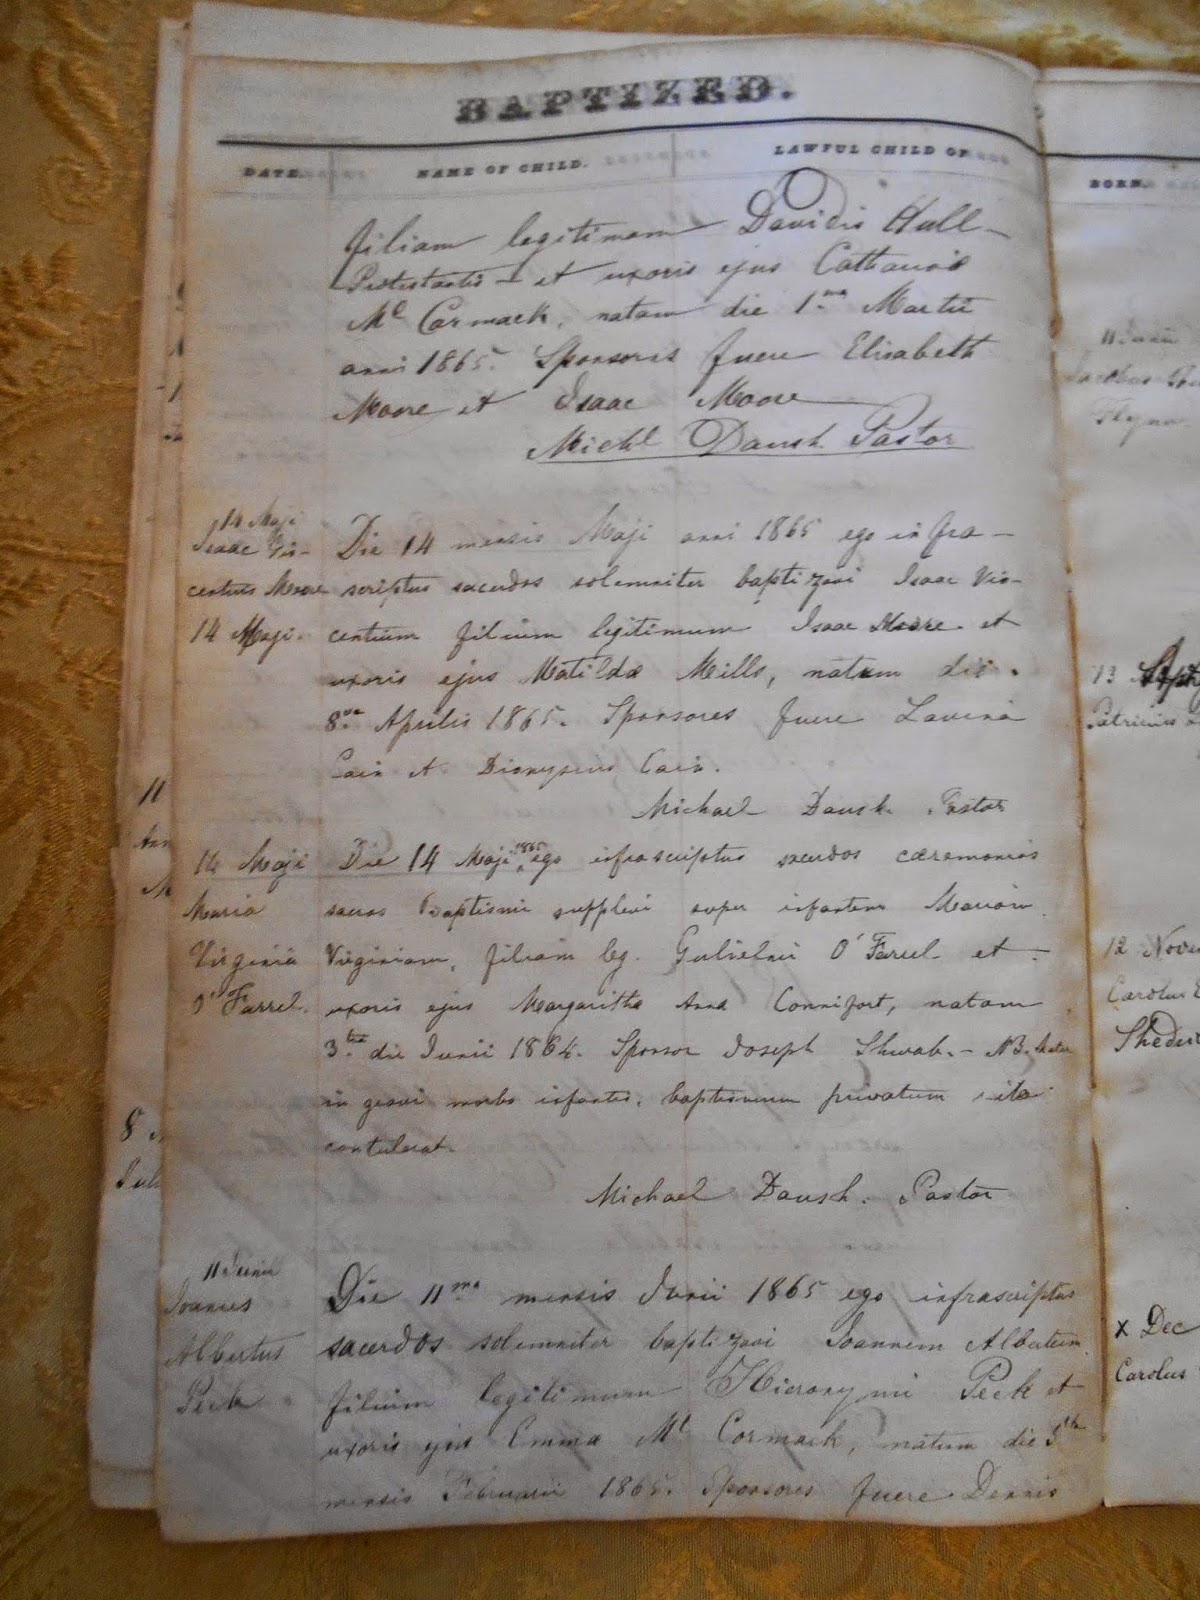 BAPTIZED.
DATE. NAME OF CHILD. LAWFUL CHILD OF
filiam legitimam Davidis Hull –
Protestantis – et uxoris ejus Catharinae
Mc Cormack, natam die 1.ma Martii
anni 1865. Sponsores fuere Elisabeth
Moore et Isaac Moore
Michl Dausch Pastor
14 Maji
Isaac Vin-
centius Moore
14 Maji.
Die 14 mensis Maji anni 1865 ego infra –
scriptus sacerdos solemniter baptizavi Isaac Vin-
centium filium legitimum Isaac Moore et
uxoris ejus Matildae Mills, natum die
8.va Aprilis 1865. Sponsores fuere Lavina
Cain et Dionysius Cain.
Michael Dausch. Pastor
14 Maji
Maria
Virginia
O'Farrel.
Die 14 Maji 1865 ego infrascriptus sacerdos caeremonias
sacras Baptismi supplevi super infantem Mariam
Virginiam, filiam leg. Gulielmi O'Farrel et
uxoris ejus Margaritha Anna Connifort, natam
3.tia die Junii 1864. Sponsor Joseph Shwab. – NB.
in gravi morbo infantis, baptismum privatum ita
contulerat.
Michael Dausch. Pastor
11 Junii
Joannes
Albertus
Peek
Die 11ma mensis Junii 1865 ego infrascriptus
sacerdos solemniter baptizavi Joannem Albertum
filium legitimum Hieronymi Peek et
uxoris ejus Emma Mc Cormack, natum die
mensis Februarii 1865. Sponsores fuere Dennis
11
8
BORN.
11 Junii
Jacobus
Flynn
13
Patricius
12 Nove
Carolus
X Dec
Carolus